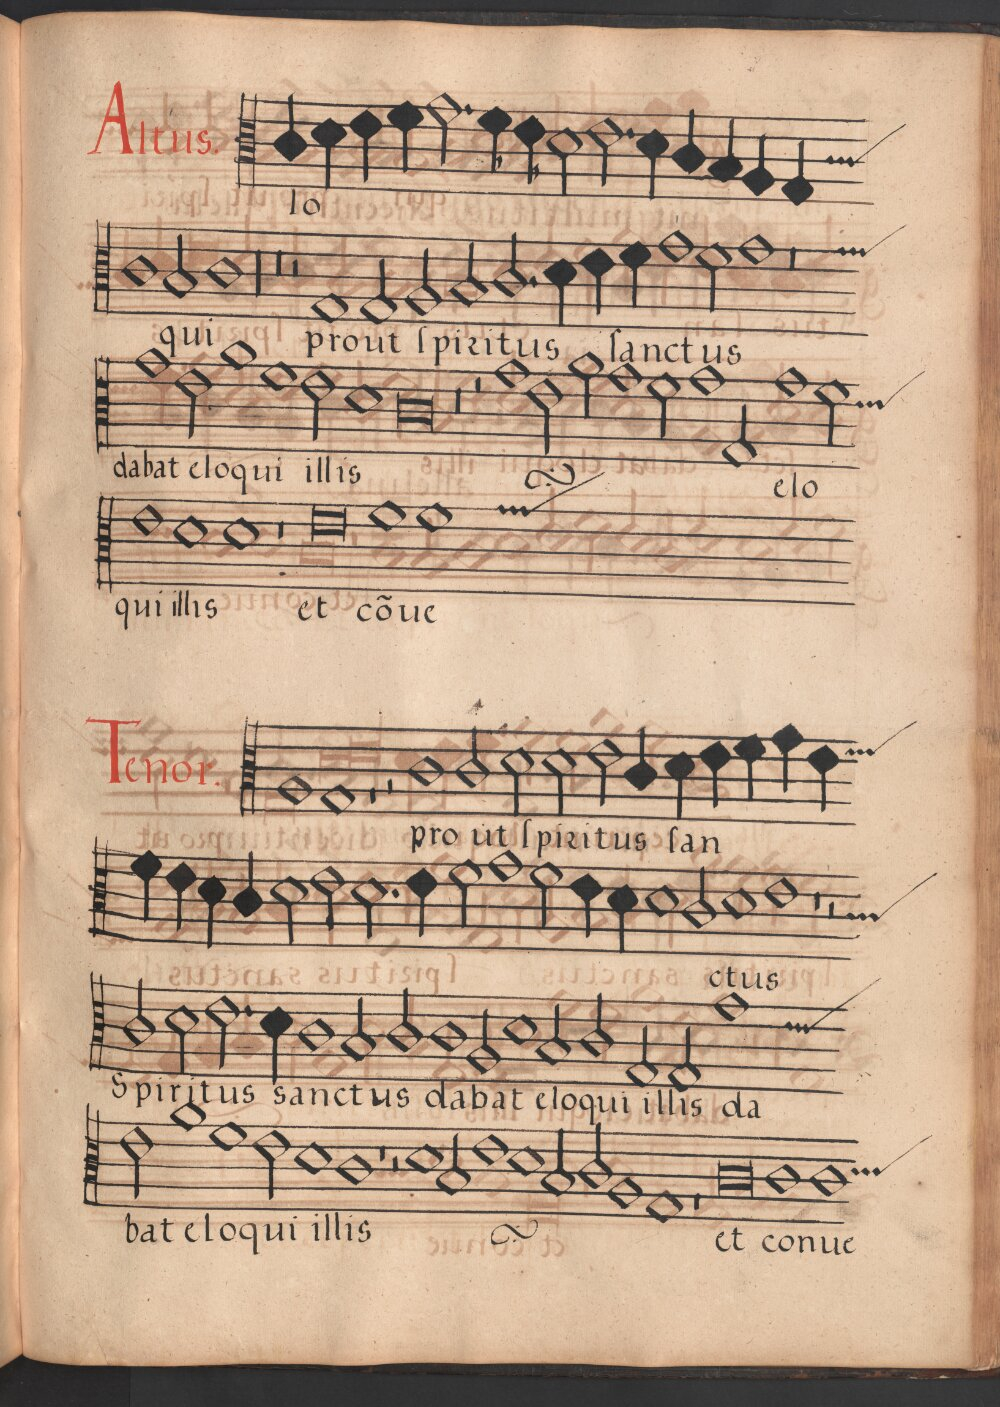 Altus.
lo
qui prout spiritus sanctus
dabat eloqui illis elo
qui illis et cõue
Tenor.
pro ut spiritus san
ctus
Spiritus sanctus dabat eloqui illis da
bat eloqui illis et conue